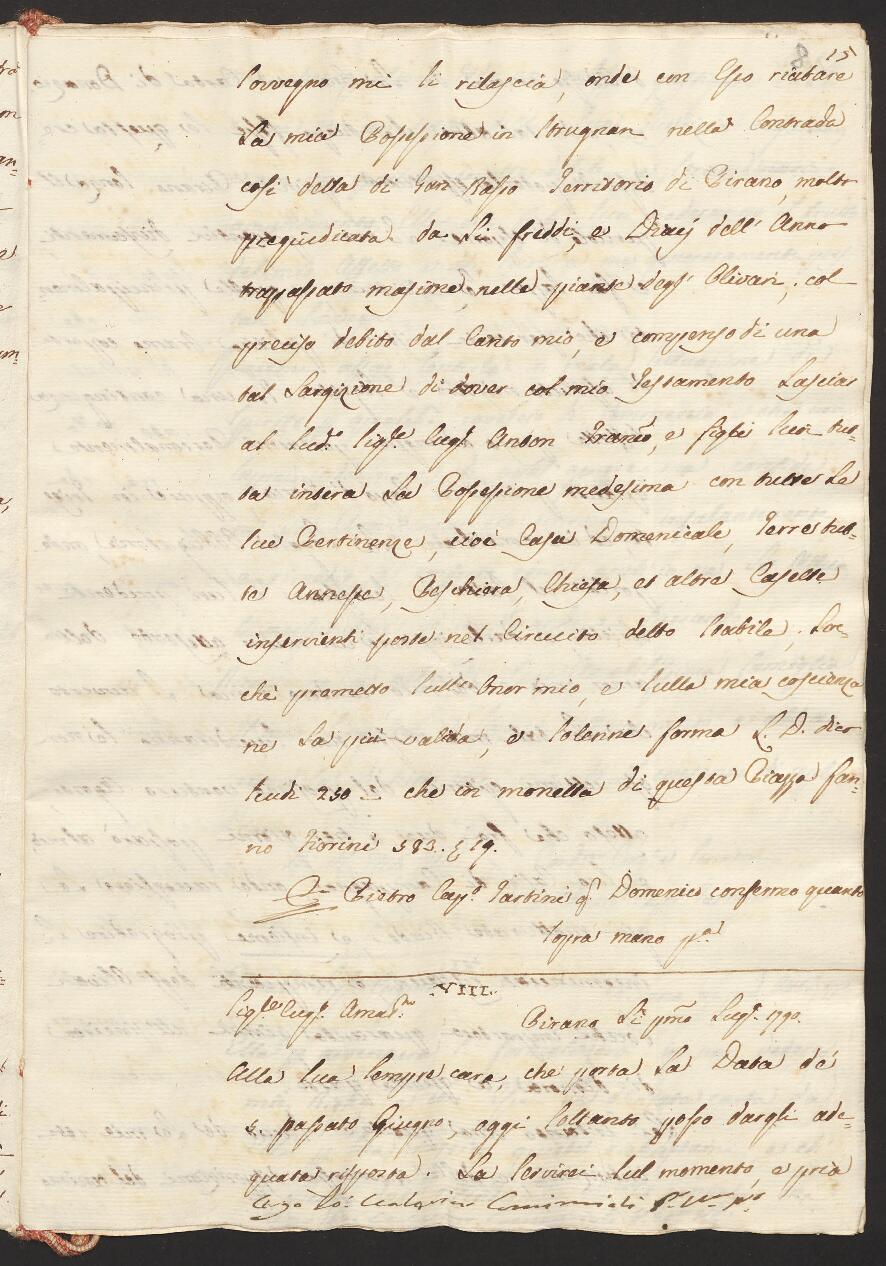 151
8
Convegno mi li rilascia, onde con Esso riattare
La mia Possessione in Strugnan nella Contrada
così detta di San Basso Territorio di Pirano, molto
pregiudicata da Li freddi, e Diacij dell' Anno
trapassato masime nelle piante degl' Olivari, col
preciso debito dal Canto mio, e compenso di una
tal Largizione di dover col mio Testamento Lasciar
al Sud.o Sig.re Cug.o Anton Franc.o, e figli suoi tut-
ta intera La Possessione medesima con tutte Le
sue Pertinenze, cioè Casa Domenicale, Terre tut-
te Annesse, Peschiera, Chiesa, et altre Casette
inservienti poste nel Circuito detto Stabile. Loc-
chè prometto sull' Onor mio, e sulla mia coscienza
ne La più valida, e solenne forma L. D. dico
Scudi 250 che in monetta di questa Piazza fan-
no Fiorini 583. 19.
Pietro Cap.o Tartini q.m Domenico confermo quanto
sopra mano p.a
VIII.
Sig.re Cug.o Amat.mo Pirano Li p.mo Lug.o 1790.
Alla sua sempre cara, che porta La Data dè
5 passato Giugno, oggi soltanto posso dargli ade-
quata risposta. La servirei sul momento, e pria